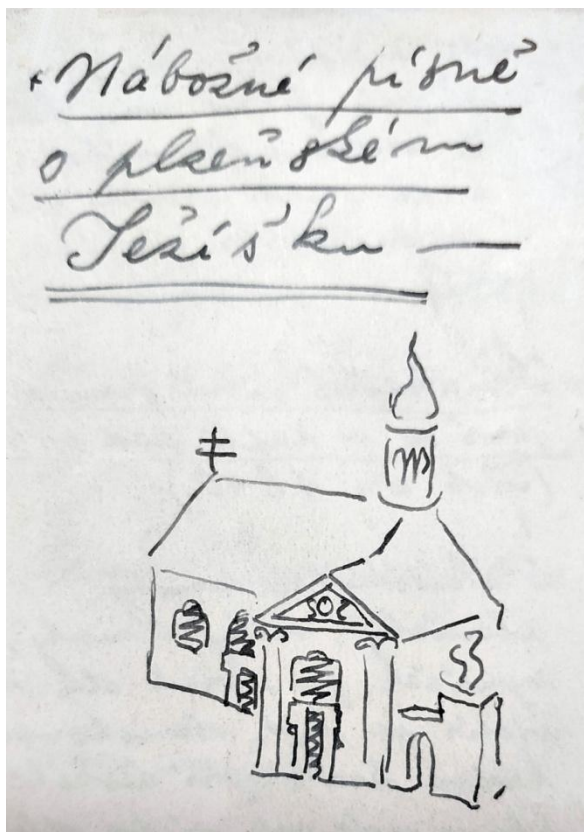 Nábožné písně
o plzeňském
Ježíšku —